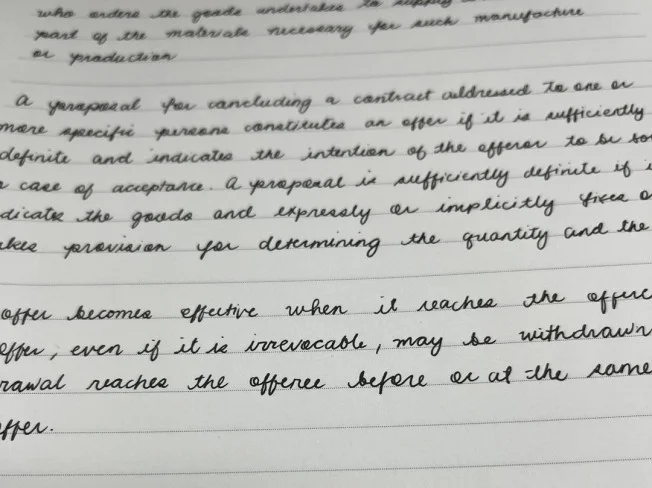 who orders the goods undertakes to supply
part of the materials necessary for such manufacture
or production
A proposal for concluding a contract addressed to one or
more specific persons constitutes an offer if it is sufficiently
definite and indicates the intention of the offeror to be bou
case of acceptance. A proposal is sufficiently definite if i
dicates the goods and expressly or implicitly fixes o
akes provision for determining the quantity and the
offer becomes effective when it reaches the offere
offer, even if it is irrevocable, may be withdrawn
rawal reaches the offeree before or at the same
offer.